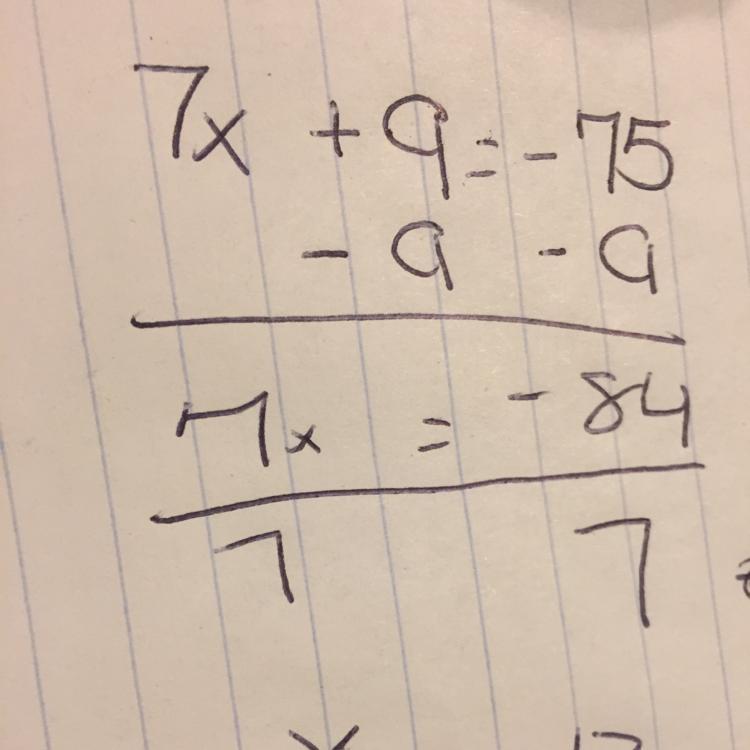 7x + 9 = - 75
- 9 - 9
7x = - 84
7 7
x